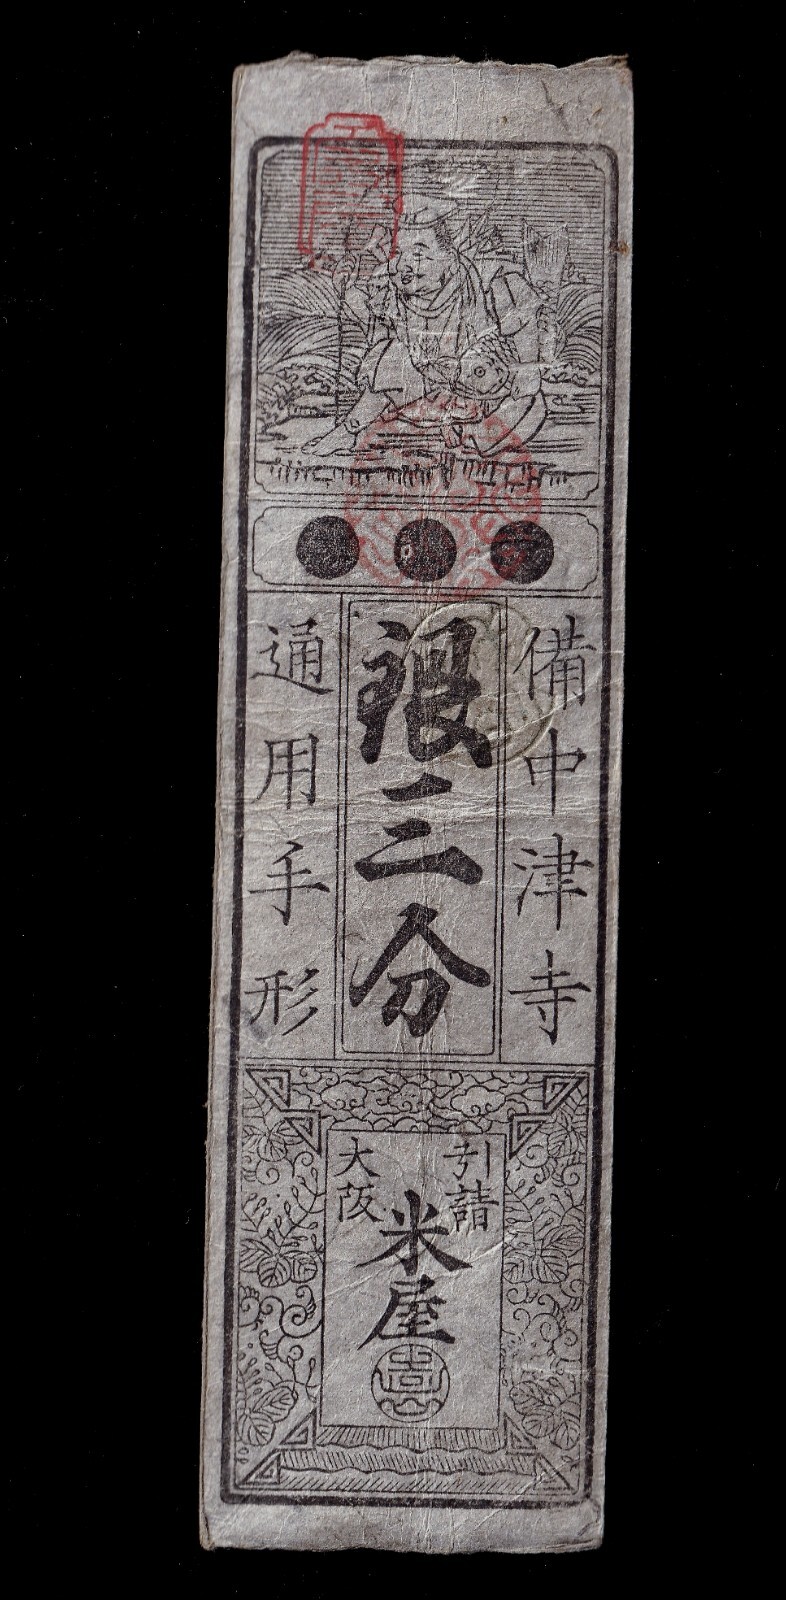 備中津寺
銀二分
通用手形
引請
大阪
米屋